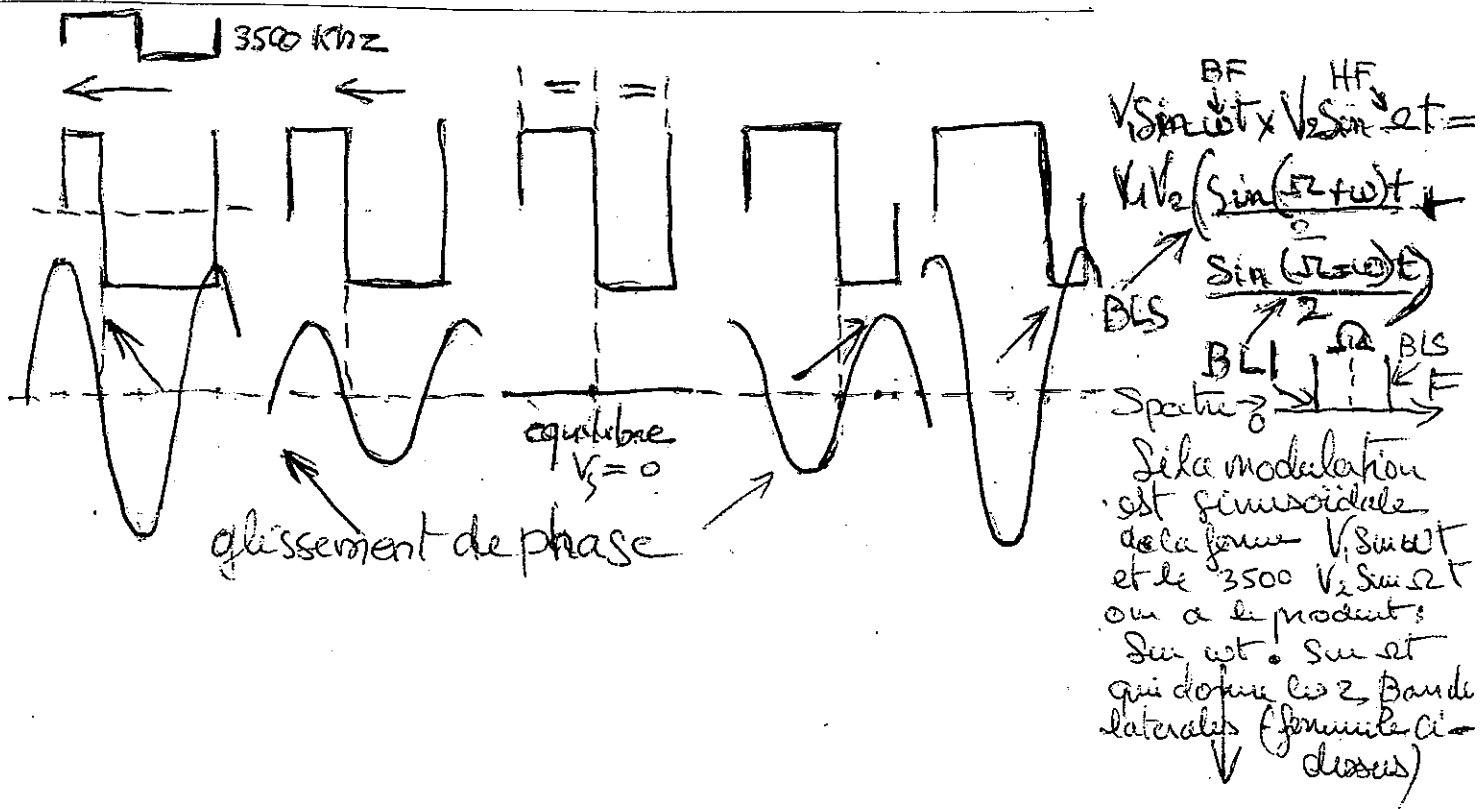 3500 KHz
= =
équilibre
Vs = 0
glissement de phase
BF HF
V₁Sin ωt x V₂Sin Ωt =
V₁V₂(Sin(Ω+ω)t
2
Sin(Ω-ω)t)
2
BLS
BLI Ω BLS
Spectre → 0 F
Si la modulation
est sinusoïdale
de la forme V₁Sin ωt
et le 3500 V₂Sin Ωt
on a le produit :
Sin ωt . Sin Ωt
qui donne les 2 Bandes
laterales (formule ci-
dessus)